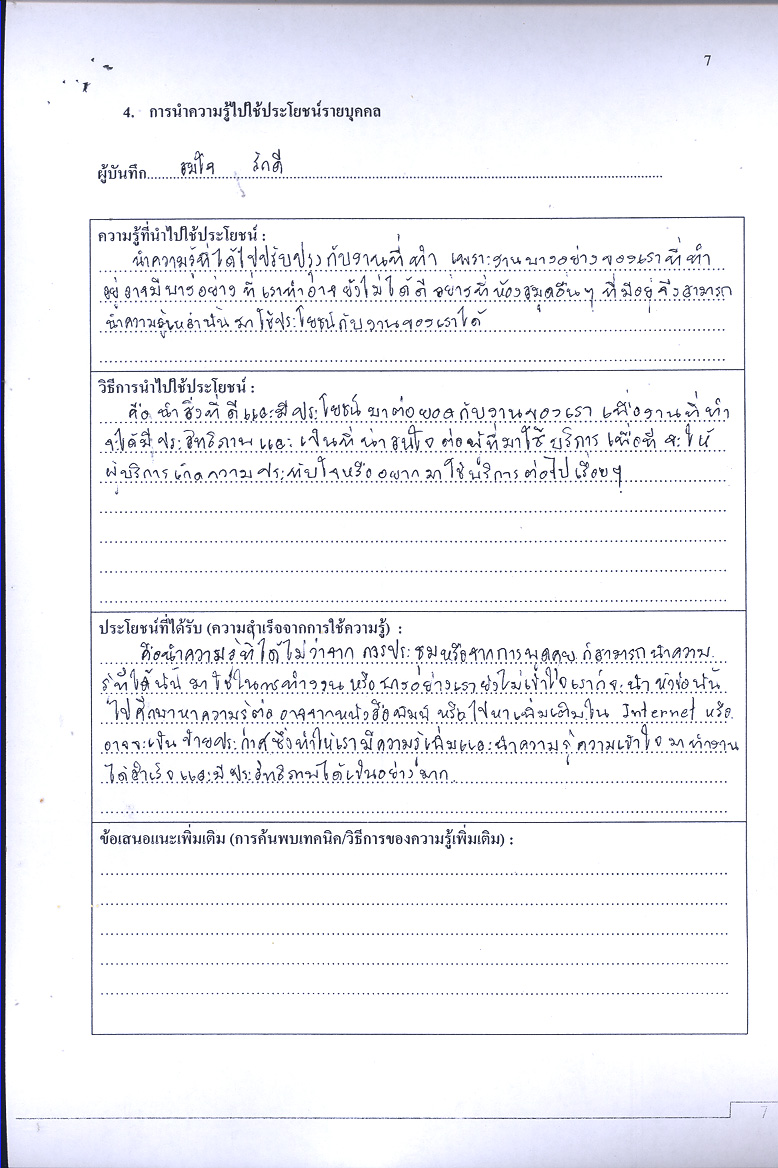 7
4. การนำความรู้ไปใช้ประโยชน์รายบุคคล
ผู้บันทึก สมใจ รักดี
ความรู้ที่นำไปใช้ประโยชน์ :
นำความรู้ที่ได้ไปปรับปรุงกับงานที่ทำ เพราะงานบางอย่างของเราที่ทำ
อยู่อาจมีบางอย่างที่เราทำอาจยังไม่ได้ดีอย่างที่ห้องสมุดอื่นๆ ที่มีอยู่จึงสามารถ
นำความรู้เหล่านั้นมาใช้ประโยชน์กับงานของเราได้
วิธีการนำไปใช้ประโยชน์ :
คือ นำสิ่งที่ดีและมีประโยชน์ มาต่อยอดกับงานของเรา เพื่องานที่ทำ
จะได้มีประสิทธิภาพและเป็นที่น่าสนใจต่อผู้ที่มาใช้บริการเพื่อที่จะให้
ผู้บริการเกิดความประทับใจหรืออยากมาใช้บริการต่อไปเรื่อยๆ
ประโยชน์ที่ได้รับ (ความสำเร็จจากการใช้ความรู้) :
คือนำความรู้ที่ได้ไม่ว่าจากการประชุมหรือจากการพูดคุยก็สามารถนำความ
รู้ที่ได้นั้นมาใช้ในการทำงาน หรือบางอย่างเรายังไม่เข้าใจเราก็จะนำหัวข้อนั้น
ไปศึกษาหาความรู้ต่อ อาจจากหนังสือพิมพ์ หรือไปหาเพิ่มเติมใน Internet หรือ
อาจจะเป็นป้ายประกาศซึ่งทำให้เรามีความรู้เพิ่มและนำความรู้ความเข้าใจมาทำงาน
ได้สำเร็จและมีประสิทธิภาพได้เป็นอย่างมาก
ข้อเสนอแนะเพิ่มเติม (การค้นพบเทคนิค/วิธีการของความรู้เพิ่มเติม) :
7